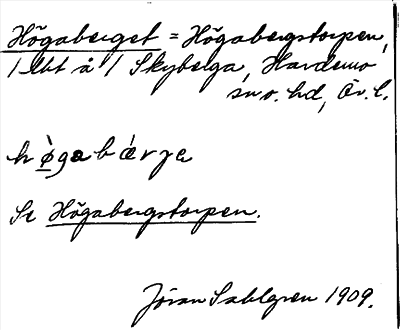 Högaberget = Högabergstorpen,
/ lht å / Skyberga, Hardemo
sn o. hd, Ör. l.
hø̀gabǽrja
Se Högabergstorpen.
Jöran Sahlgren 1909.